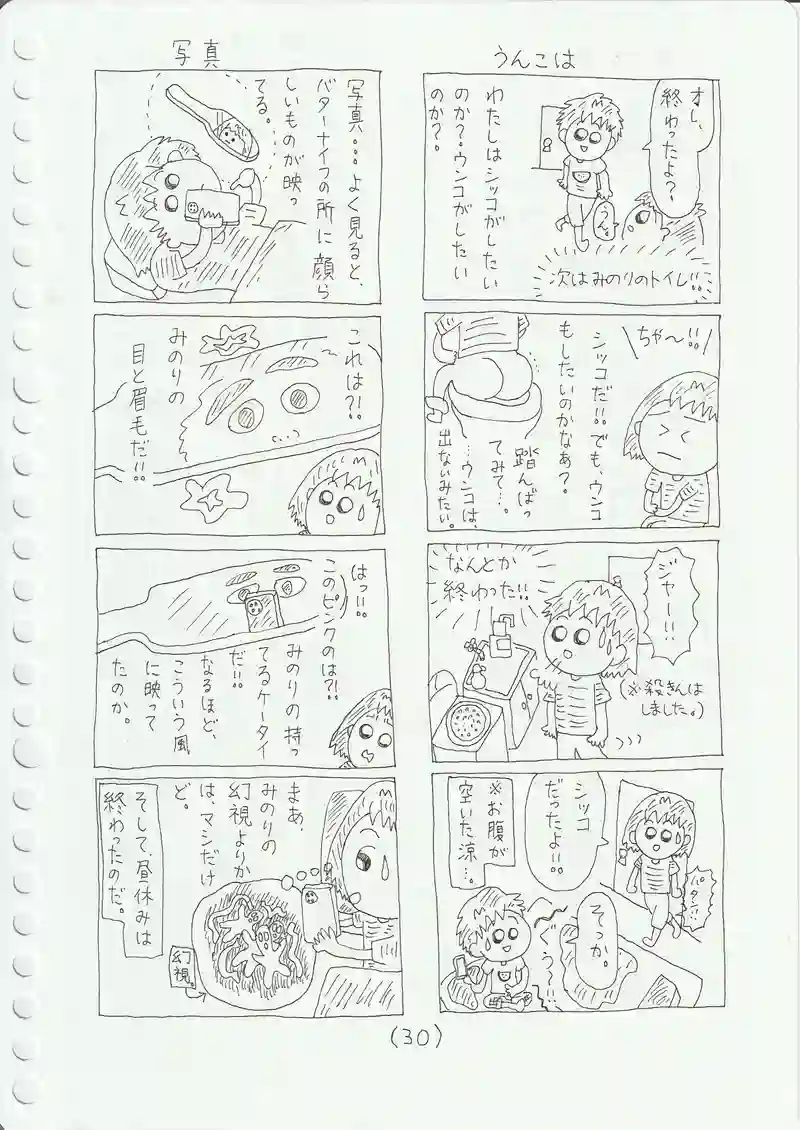 うんこは
オレ、
終わったよ?
うん。
8
次はみのりのトイレ!!
わたしはシッコがしたい
のか?ウンコがしたい
のか?
ちゃ〜!!
シッコだ!!でも、ウンコ
もしたいのかなあ?
踏んばっ
てみて…。
…ウンコは、
出ないみたい。
ジャー!!
なんとか
終わった!!
(※殺きんは
しました。)
シッコ
だったよ!!
バタン!!
そっか。
ぐぅ〜!!
※お腹が
空いた涼…。
写真
写真…よく見ると、
バターナイフの所に顔ら
しいものが映っ
てる。
これは?!
みのりの
目と眉毛だ!!
はっ!!
このピンクのは?!
みのりの持っ
てるケータイ
だ!!
なるほど、
こういう風
に映って
たのか。
まあ、
みのりの
幻視よりか
は、マシだけ
ど。
幻視。
そして、昼休みは
終わったのだ。
(30)